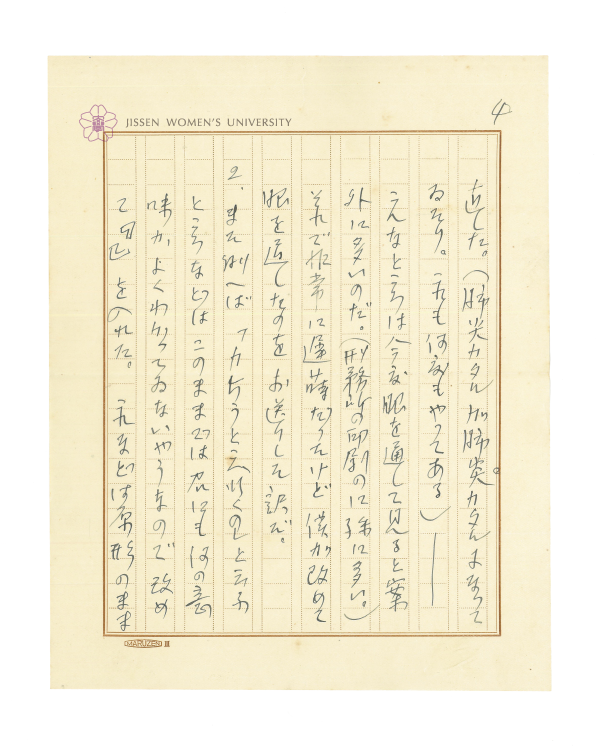 4
JISSEN WOMEN'S UNIVERSITY
直した。(肺尖カタルガ肺炎カタルになつて
ゐたり。 一元も何度もやつてある)――
こんなところは今度眼を通して見ると案
外に多いのだ。(刑務所の印刷のに殊に多い。)
それで非常に遅蒔だつたけど 僕が改めて
眼を通したのをお送りした訳だ。
2. また例へば「カ
ところなどはこのままでは君にも何の意
味か、よくわかつてゐないやうなので 改め
て 凸 を入れた。 之などは原形のまま
MARUZEN III